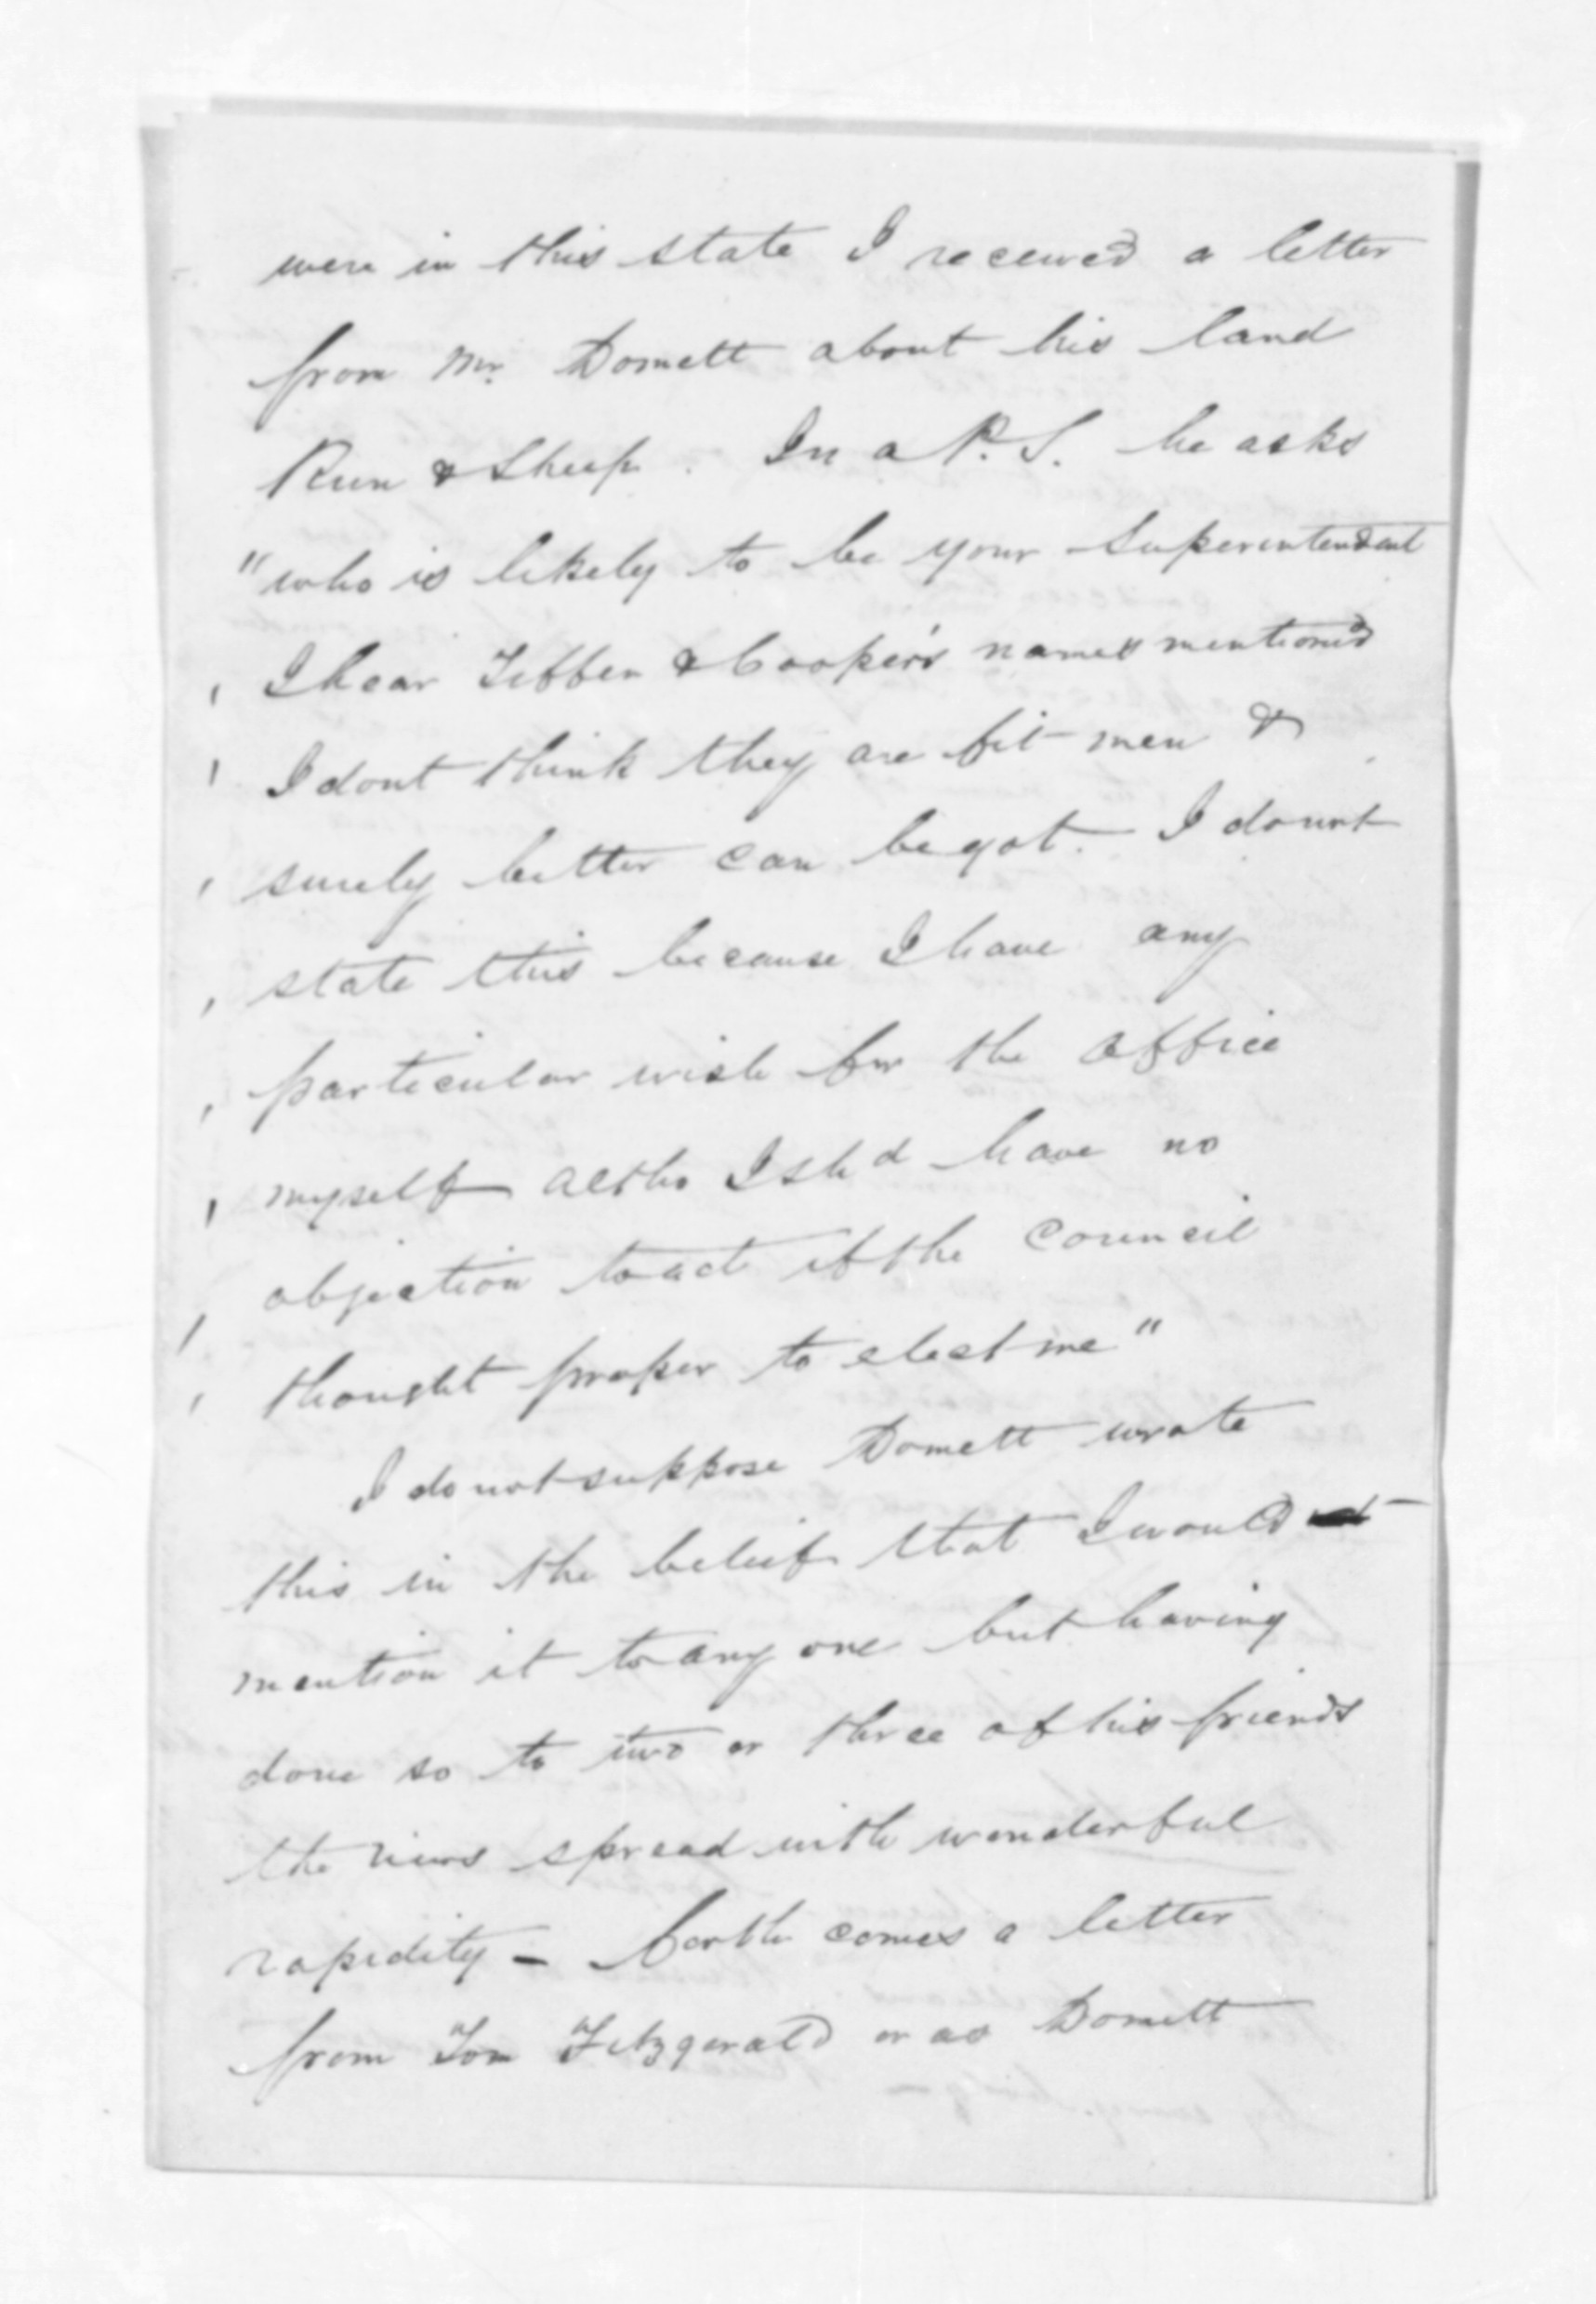 were in this state I received a letter
from Mr. Domett about his land
Run & Sheep. In a P.S. he asks
"who is likely to be your Superintendent
' I hear Tiffen & Cooper's names mentioned
' I dont think they are fit men &
' surely better can be got. I do not
' state this because I have any
' particular wish for the office
' myself altho I shd have no
' objection to act if the Council
' thought proper to elect me"
I do not suppose Domett wrote
this in the belief that I would
mention it to any one but having
done so to two or three of his friends
the news spread with wonderful
rapidity – forth comes a letter
from Tom Fitzgerald or as Domett